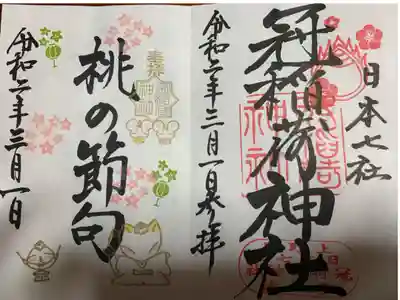 日本七社
冠稲荷神社
令和二年三月一日参拝
桃の節句
令和二年三月一日